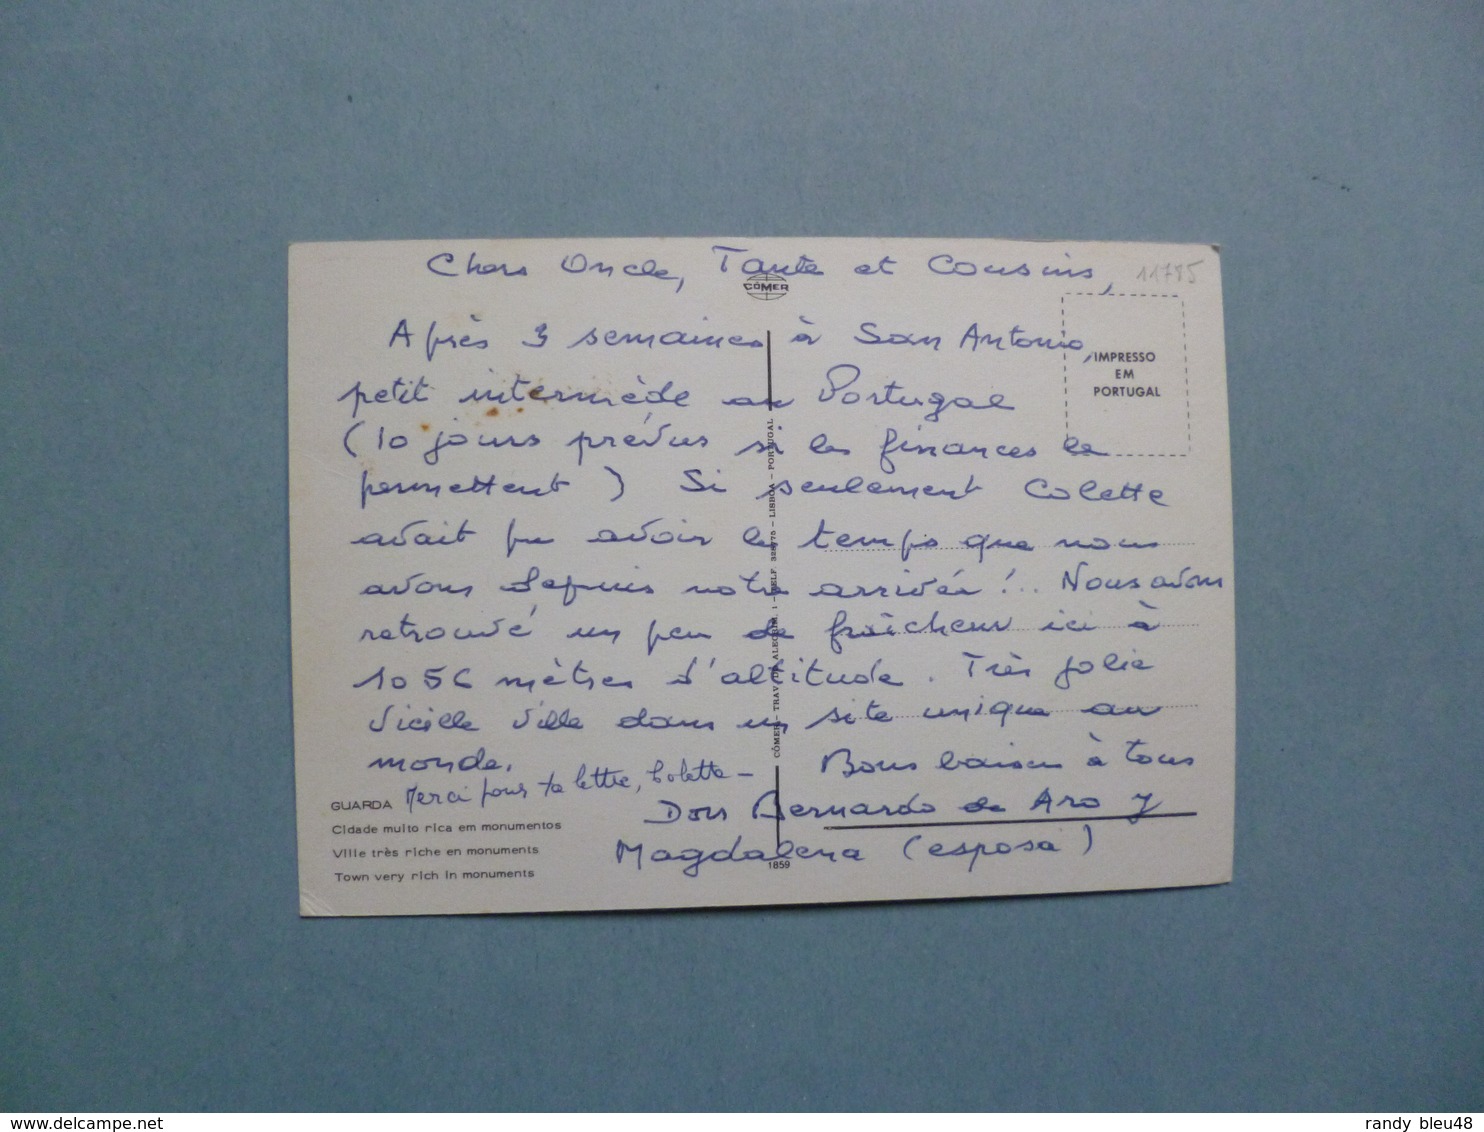 Chers Oncle, Tante et Cousins,
11785
CÔMER
Après 3 semaines à San Antonio,
petit intermède au Portugal
(10 jours prévus si les finances le
permettent) Si seulement Colette
avait pu avoir le temps que nous
avons depuis notre arrivée!.. Nous avons
retrouvé un peu de fraîcheur ici à
1056 mètres d'altitude. Très jolie
vieille ville dans un site unique au
monde.
Merci pour ta lettre, Colette -
Bons baisers à tous
Don Bernardo de Aro y
Magdalena (esposa)
IMPRESSO
EM
PORTUGAL
CÔMER - TRAV. DO ALEGRIM, 1 - TELF. 328775 - LISBOA - PORTUGAL
GUARDA
Cidade muito rica em monumentos
Ville très riche en monuments
Town very rich in monuments
1859
delcampe.net
randy_bleu48